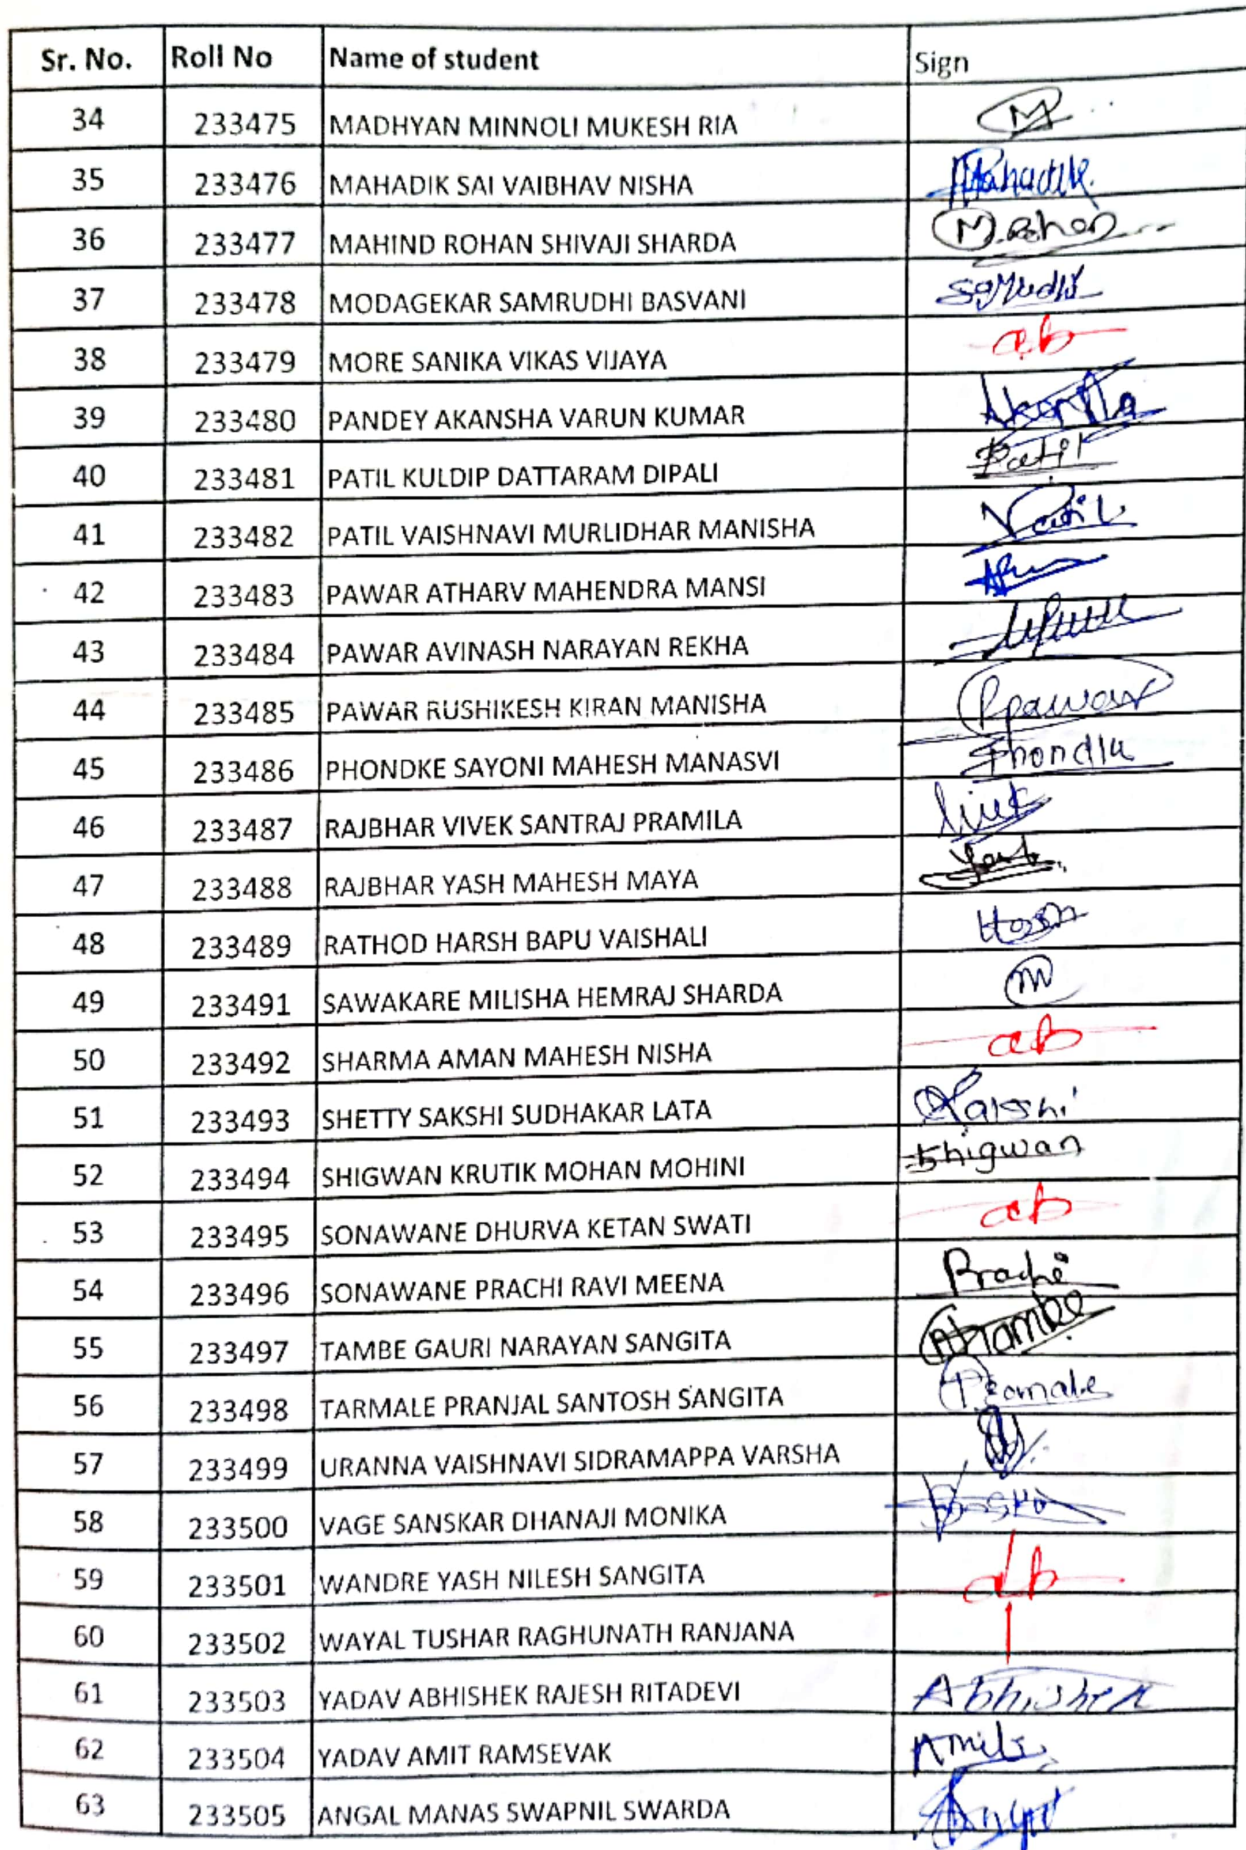 Sr. No. Roll No Name of student Sign
34 233475 MADHYAN MINNOLI MUKESH RIA M
35 233476 MAHADIK SAI VAIBHAV NISHA Mahadik
36 233477 MAHIND ROHAN SHIVAJI SHARDA M.Rohan
37 233478 MODAGEKAR SAMRUDHI BASVANI
38 233479 MORE SANIKA VIKAS VIJAYA ab
39 233480 PANDEY AKANSHA VARUN KUMAR
40 233481 PATIL KULDIP DATTARAM DIPALI Patil
41 233482 PATIL VAISHNAVI MURLIDHAR MANISHA
42 233483 PAWAR ATHARV MAHENDRA MANSI
43 233484 PAWAR AVINASH NARAYAN REKHA
44 233485 PAWAR RUSHIKESH KIRAN MANISHA
45 233486 PHONDKE SAYONI MAHESH MANASVI
46 233487 RAJBHAR VIVEK SANTRAJ PRAMILA
47 233488 RAJBHAR YASH MAHESH MAYA
48 233489 RATHOD HARSH BAPU VAISHALI Harsh
49 233491 SAWAKARE MILISHA HEMRAJ SHARDA m
50 233492 SHARMA AMAN MAHESH NISHA ab
51 233493 SHETTY SAKSHI SUDHAKAR LATA
52 233494 SHIGWAN KRUTIK MOHAN MOHINI Shigwan
53 233495 SONAWANE DHURVA KETAN SWATI ab
54 233496 SONAWANE PRACHI RAVI MEENA Prachi
55 233497 TAMBE GAURI NARAYAN SANGITA
56 233498 TARMALE PRANJAL SANTOSH SANGITA
57 233499 URANNA VAISHNAVI SIDRAMAPPA VARSHA
58 233500 VAGE SANSKAR DHANAJI MONIKA
59 233501 WANDRE YASH NILESH SANGITA ab
60 233502 WAYAL TUSHAR RAGHUNATH RANJANA
61 233503 YADAV ABHISHEK RAJESH RITADEVI Abhishek
62 233504 YADAV AMIT RAMSEVAK Amit
63 233505 ANGAL MANAS SWAPNIL SWARDA